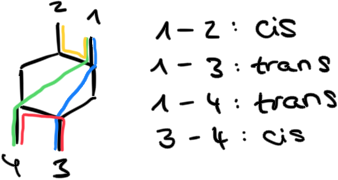 2 1
4 3
1-2: cis
1-3: trans
1-4: trans
3-4: cis